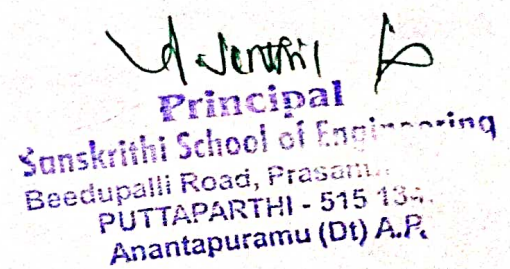 Principal
Sanskrithi School of Engineering
Beedupalli Road,
PUTTAPARTHI - 515
Anantapuramu (Dt) A.P.